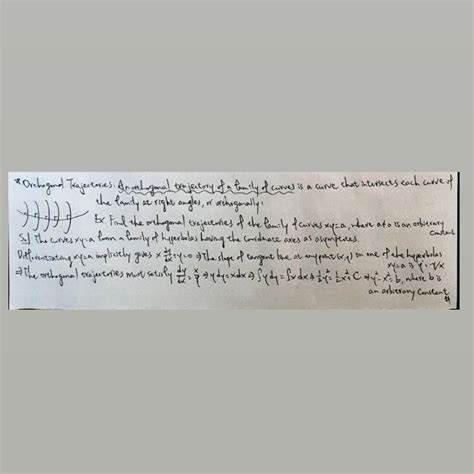 * Orthogonal Trajectories: An orthogonal trajectory of a family of curves is a curve that intersects each curve of
the family at right angles, or orthogonally:
Ex Find the orthogonal trajectories of the family of curves xy=a, where a≠0 is an arbitrary
constant
Sol The curves xy=a form a family of hyperbolas having the coordinate axes as asymptotes.
Differentiating xy=a implicitly gives x dy/dx + y=0 ⇒ The slope of tangent line at any point (x,y) on one of the hyperbolas
xy=a is y'=-y/x
⇒ The orthogonal trajectories must satisfy dy/dx = x/y ⇒ y dy = x dx ⇒ ∫y dy = ∫x dx ⇒ ½y² = ½x² + C ⇒ y² - x² = b, where b is
an arbitrary constant #